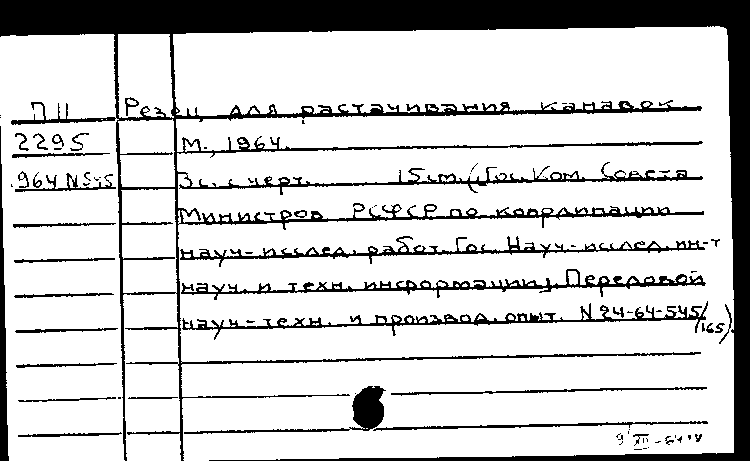 П11 Резец для растачивания канавок
2295 М., 1964.
964 N545 3с. с черт. 15 см. (Гос. Ком. Совета
Министров РСФСР по координации
науч-исслед. работ. Гос. Науч-исслед. ин-т
науч. и техн. информации). Передовой
науч-техн. и производ. опыт. N 24-64-545/
165).
9/XII-64